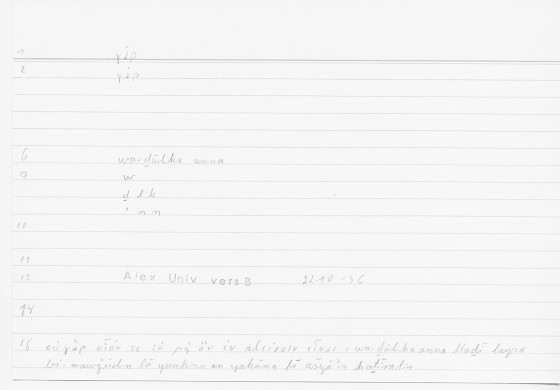 1 γάρ
2 γάρ
6 wa-ḏālika anna
7 w
ḏ l k
ʾ n n
10
11
12 Alex Univ vers B 22.10
14
16 οὐ γάρ οἷόν τε τὸ μὴ ὂν ἐν πλείοσιν εἶναι : wa-ḏālika anna llaḏī laysa
bi-mawǧūdin lā yumkinu an yakūna fī ašyāʾa kaṯīratin